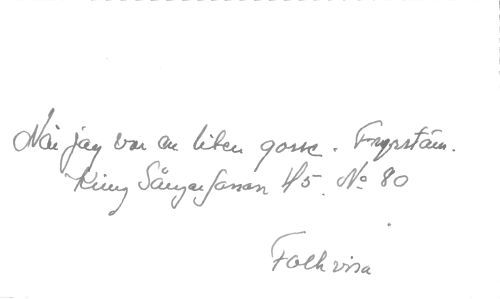 När jag var en liten gosse.
Kring Sångarfanan 45. No 80
Folkvisa